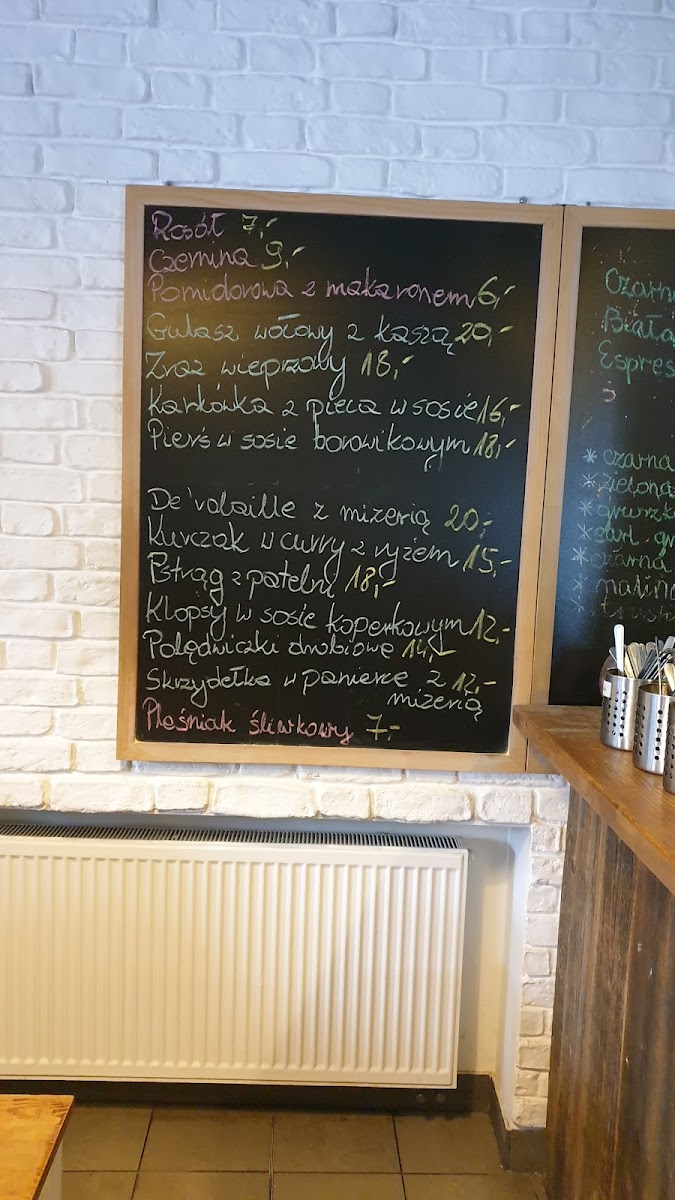 Rosół 7,-
Czernina 9,-
Pomidorowa z makaronem 6,-
Gulasz wołowy z kaszą 20,-
Zraz wieprzowy 18,-
Karkówka z pieca w sosie 16,-
Pierś w sosie borowikowym 18,-
De'volaille z mizerią 20,-
Kurczak w curry z ryżem 15,-
Pstrąg z patelni 18,-
Klopsy w sosie koperkowym 12,-
Polędwiczki drobiowe 14,-
Skrzydełka w panierce z 12,-
mizerią
Pleśniak śliwkowy 7,-
Czarna
Biała
Espres
* czarna
* zielona
* gruszka
* earl gr
* czarna
* malino